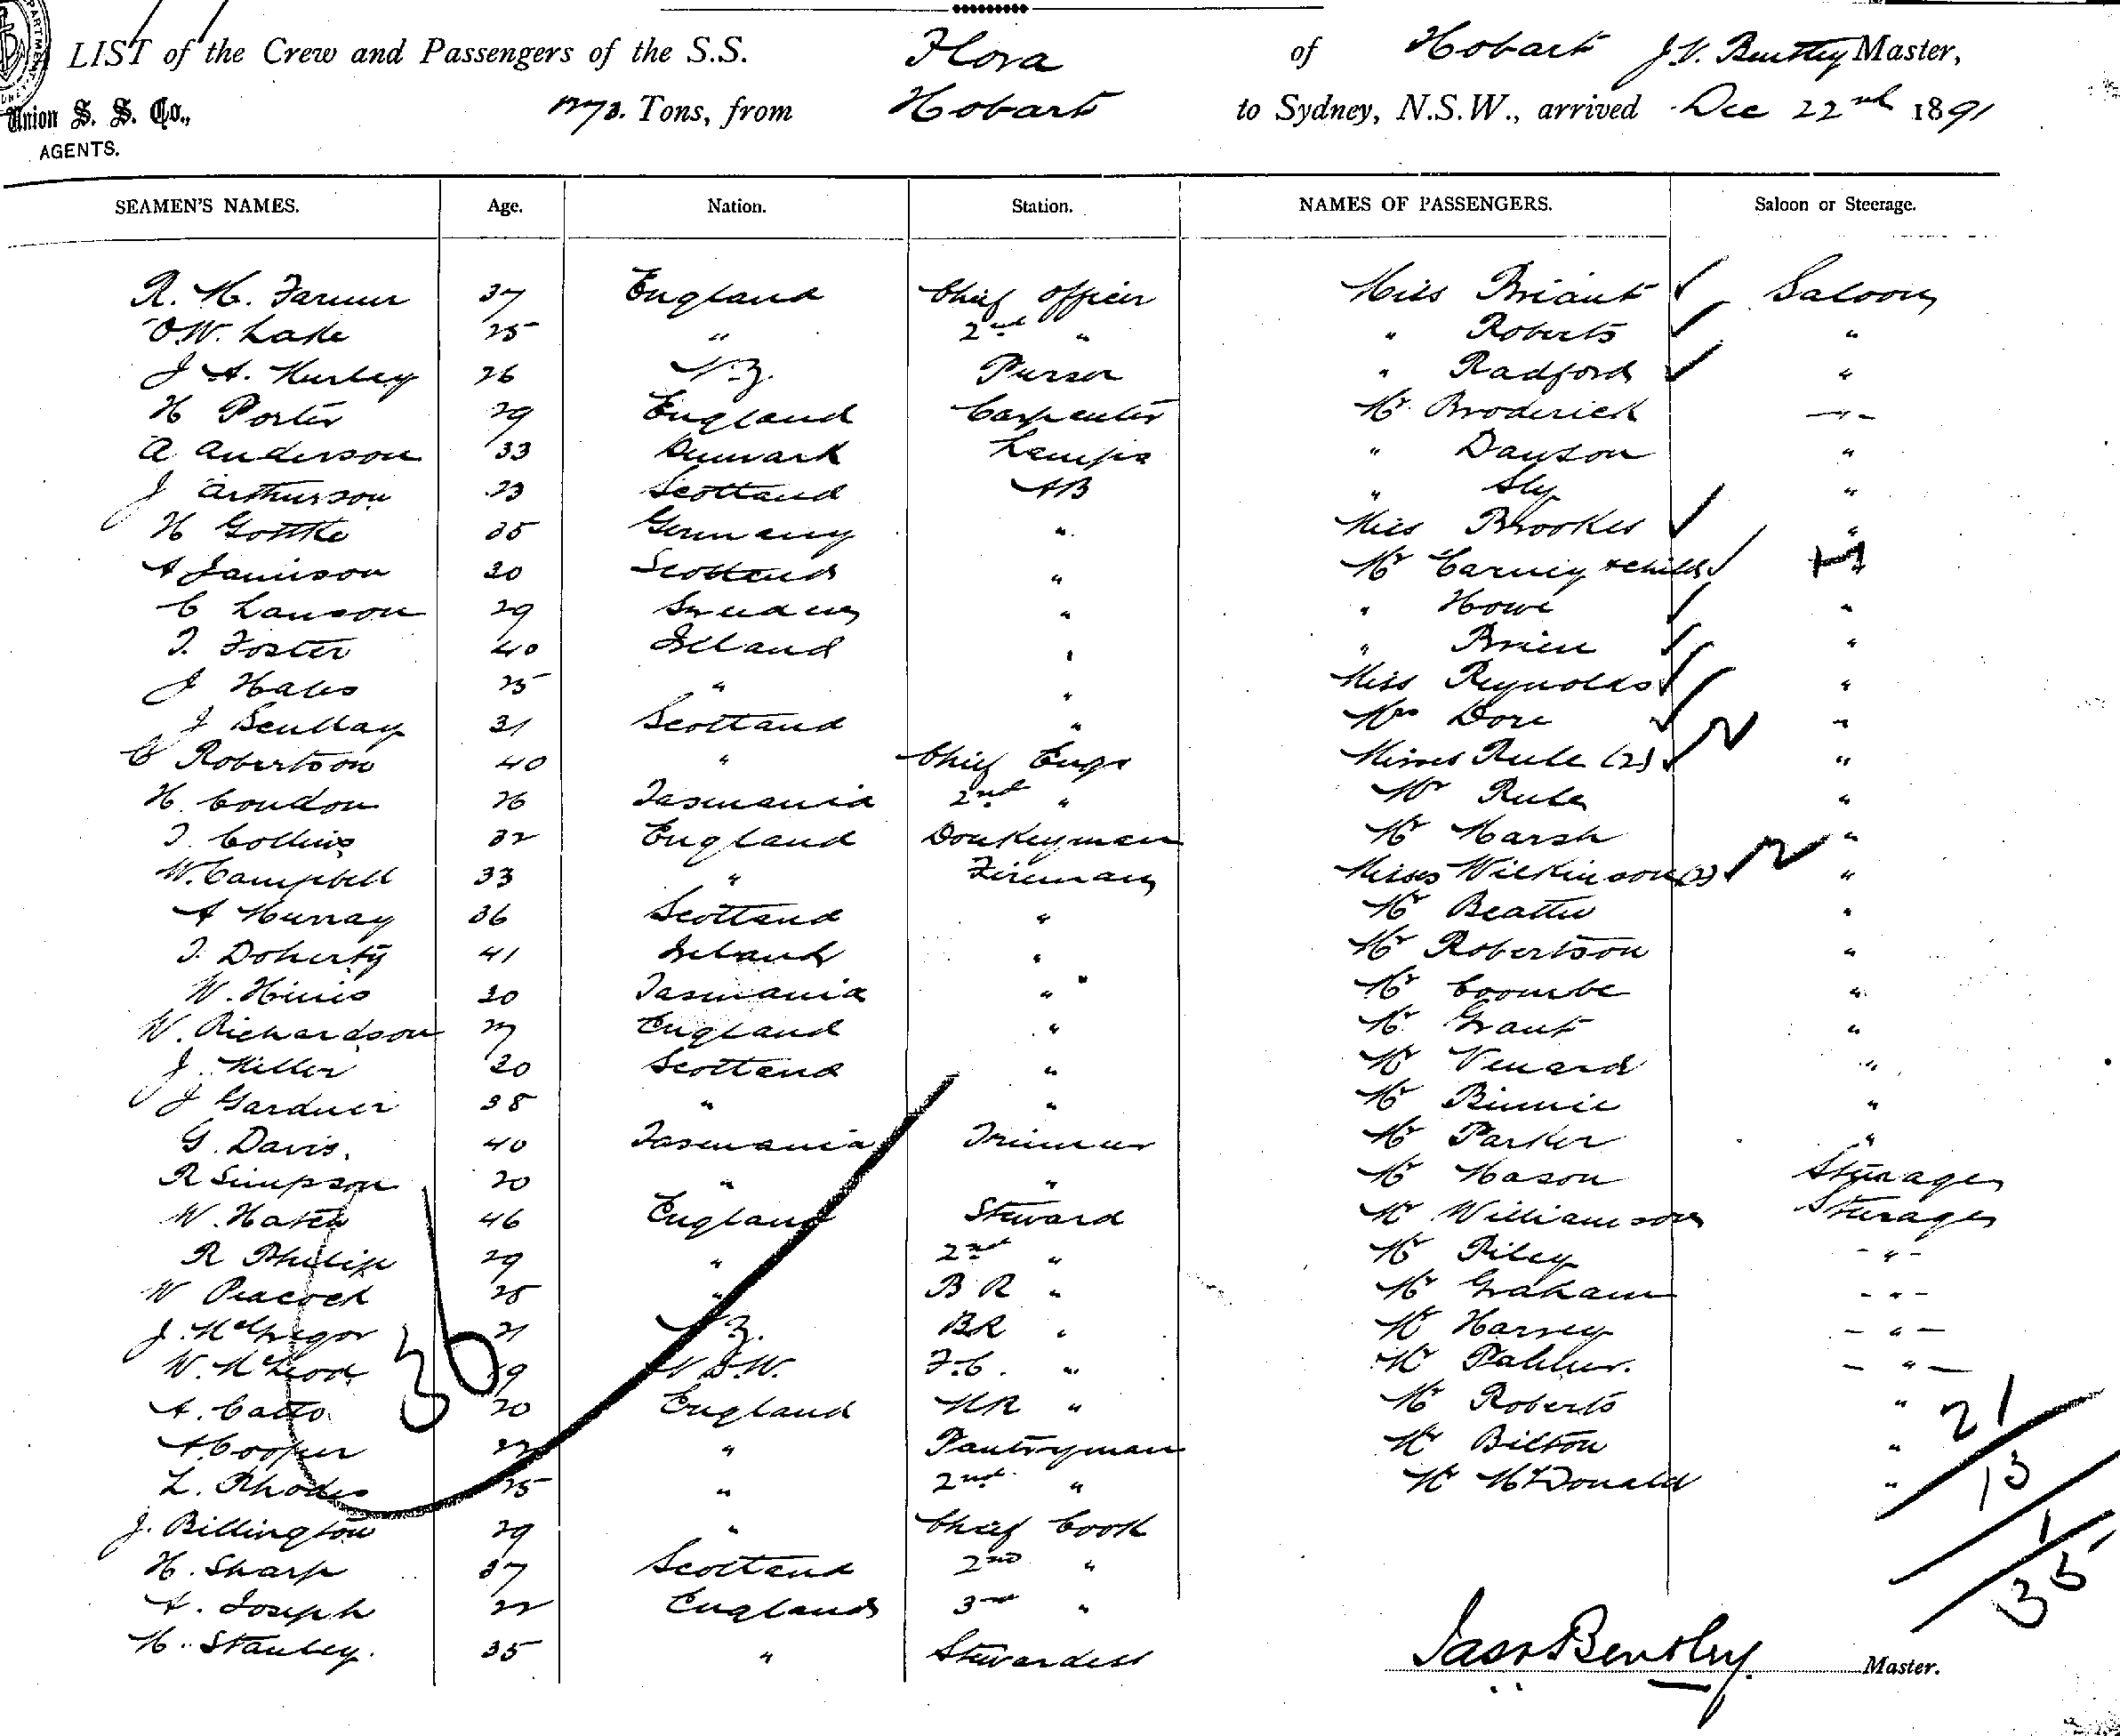 LIST of the Crew and Passengers of the S.S. Flora of Hobart J.V. Bentley Master,
Union S. S. Co., Tons, from Hobart to Sydney, N.S.W., arrived Dec 22nd 1891
AGENTS.
SEAMEN'S NAMES. Age. Nation. Station. NAMES OF PASSENGERS. Saloon or Steerage.
R. M. Farmer 37 England Chief Officer Miss Briant Saloon
O.W. Lake 25 " 2nd " " Roberts "
J A. Hurley 26 N.Z. Purser " Radford "
H Porter 29 England Carpenter Mr Broderick - " -
A Anderson 33 Denmark Lamps " Dawson "
J Arthurson 23 Scotland AB " Sly "
H Gottke 35 Germany " Miss Brookes "
A Jamison 30 Scotland " Mr Carney & child "
C Lawson 29 Sweden " " Howe "
T. Foster 40 Ireland " " Brien "
J Hales 25 " " Miss Reynolds "
J 31 Scotland " Mrs Dore "
C Robertson 40 " Chief Engr Misses Rule (2) "
H. Condon 26 Tasmania 2nd " Mr Rule "
T. Collins 32 England Donkeyman Mr Marsh "
W. Campbell 33 " Fireman Misses Wilkinson (2) "
A Murray 36 Scotland " Mr Beattie "
T. Doherty 41 Ireland " Mr Robertson "
W. 30 Tasmania " Mr Coombe "
W. Richardson 27 England " Mr Grant "
J. Miller 30 Scotland " Mr Venard "
J Gardner 38 " " Mr Binnie "
G. Davis. 40 Tasmania Trimmer Mr Parker "
R Simpson 20 " " Mr Mason Steerage
W. 46 England Steward Mr Williamson Steerage
R Philip 29 " 2nd " Mr Riley - " -
W Peacock 25 " B R " Mr Graham - " -
J. McGregor 21 N.Z. BR " Mr Harvey - " -
W. McLeod 19 N.S.W. F.C. " Mr Palmer. - " -
A. Catto 20 England " Mr Roberts "
A Cooper 22 " Pantryman Mr Bilton "
L. Rhodes 25 " 2nd " Mr McDonald "
J. Billington 29 " Chief Cook
H. Sharp 37 Scotland 2nd "
A. Joseph 22 England 3rd "
M. Stanley. 35 " Stewardess
36
21
13
1
35
Jas V Bentley Master.